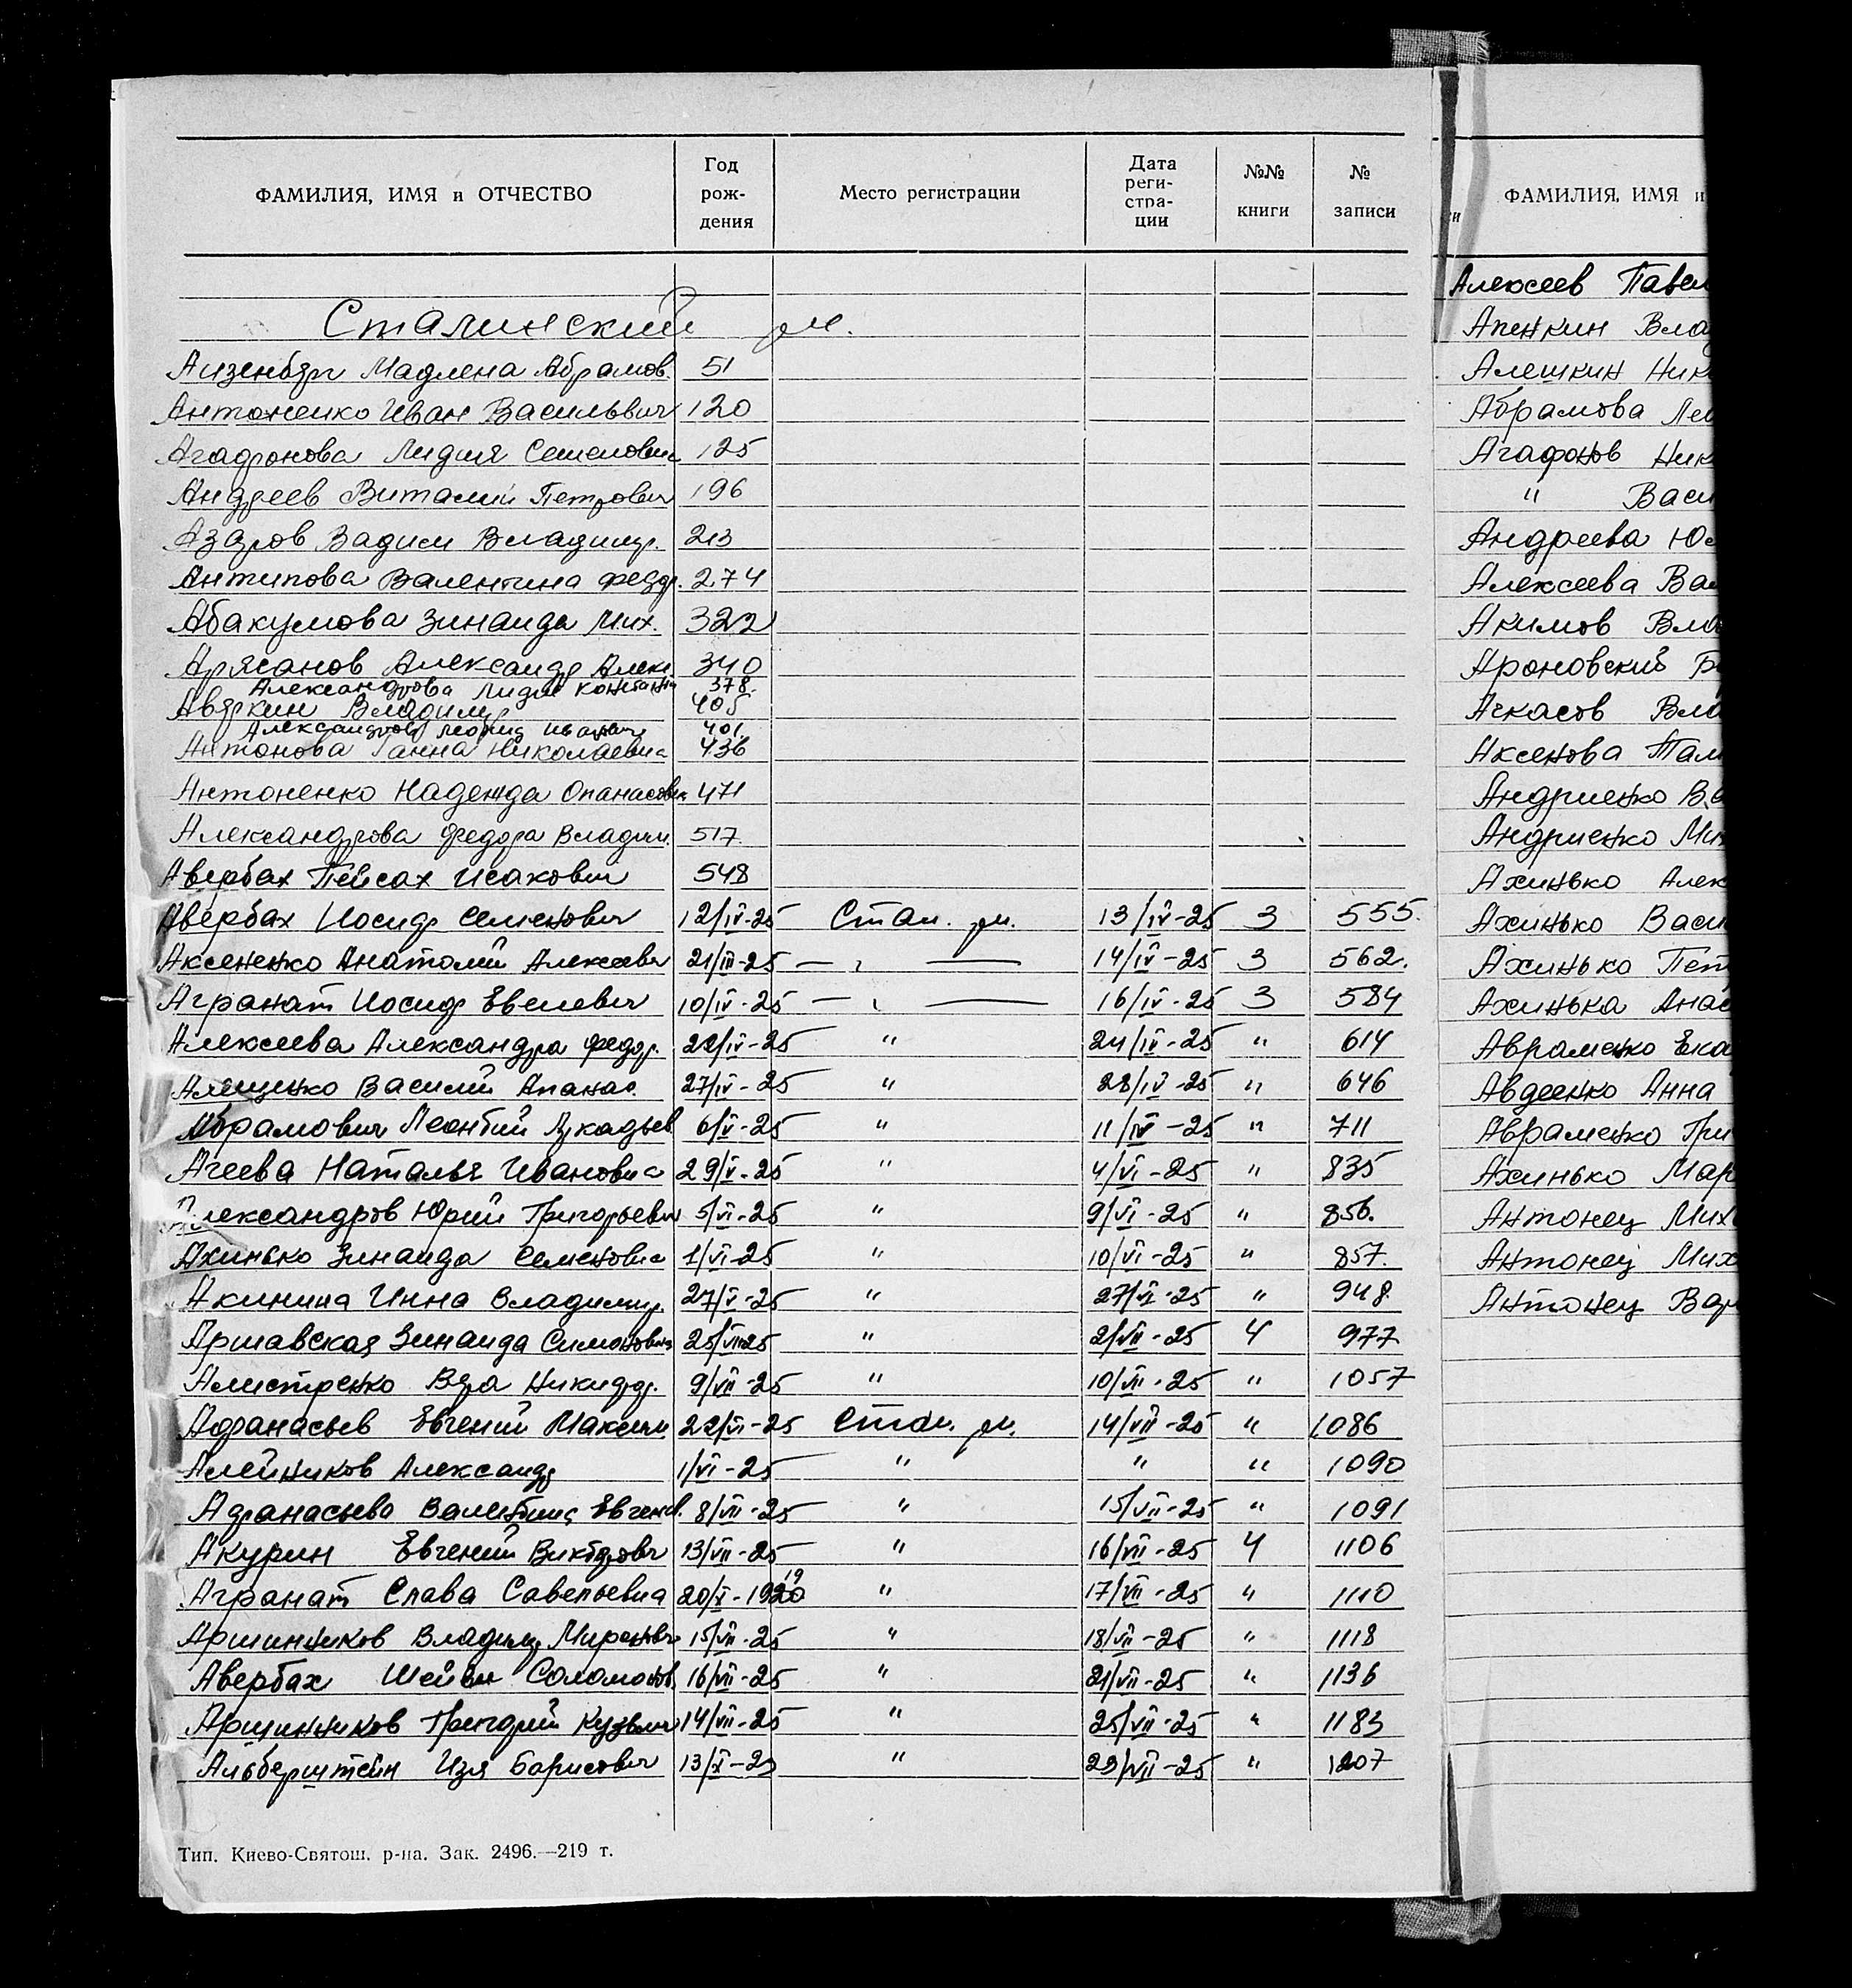 ФАМИЛИЯ, ИМЯ и ОТЧЕСТВО Год рож- дения Место регистрации Дата реги- стра- ции №№ книги № записи
Сталинский рн.
Айзенберг Мадлена Абрамов. 51
Антоненко Иван Васильевич 120
Агафонова Лидия Семеновна 125
Андреев Виталий Петрович 196
Азаров Вадим Владимир. 213
Антипова Валентина Федор. 274
Абакумова Зинаида Мих. 322
Александр Алекс. 340
Александрова Лидия Констант 378.
Аверкин Владимир 405
Александров Леонид Иванович 401
Антонова Ганна Николаевна 436
Антоненко Надежда Опанасовн 471
Александрова Федора Владим. 517
Авербах Пейсах Исакович 548
Авербах Иосиф Семенович 12/IV-25 Стал. рн. 13/IV-25 3 555.
Аксененко Анатолий Алексеевич 21/III-25 — „ — 14/IV-25 3 562.
Агранат Иосиф Евелевич 10/IV-25 — „ — 16/IV-25 3 584
Алексеева Александра Федор. 22/IV-25 " 24/IV-25 " 614
Василий Апанас. 27/IV-25 " 28/IV-25 " 646
Абрамович Леонтий Аркадьев 6/V-25 " 11/IV-25 " 711
Агеева Наталья Ивановна 29/V-25 " 4/VI-25 " 835
Александров Юрий Григорьевич 5/VI-25 " 9/VI-25 " 856.
Ахинько Зинаида Семеновна 1/VI-25 " 10/VI-25 " 857.
Акинина Инна Владимир. 27/V-25 " 27/VI-25 " 948
Аршавская Зинаида Симоновна 25/VII-25 " 2/VII-25 4 977
Алистренко Вера Никифор. 9/VII-25 " 10/VII-25 " 1057
Афанасьев Евгений Максим 22/VI-25 Стал. рн. 14/VII-25 " 1086
Алейников Александр 1/VI-25 " " " 1090
Афанасьева Валентина Евгенев. 8/VII-25 " 15/VII-25 " 1091
Акурин Евгений Викторович 13/VII-25 " 16/VII-25 4 1106
Агранат Слава Савельевна 20/X-1920 19 " 17/VII-25 " 1110
Аршинников Владимир Миронович 15/VII-25 " 18/VII-25 " 1118
Авербах Шейва Соломонов. 16/VII-25 " 21/VII-25 " 1136
Аршинников Григорий Кузьмич 14/VII-25 " 25/VII-25 " 1183
Альберштейн Изя Борисович 13/X-23 " 29/VII-25 " 1207
Тип. Киево-Святош. р-на. Зак. 2496.—219 т.
и ФАМИЛИЯ, ИМЯ и
Алексеев Павел
Апенкин Влад
Алешкин Нико
Абрамова Лео
Агафонов Ник
" Васи
Андреева Юл
Алексеева Вал
Акимов Вла
Ароновский Б
Ачкасов Вла
Аксенова Там
Андриенко Ва
Андриенко Ми
Ахинько Алек
Ахинько Васи
Ахинько Пет
Ахинька Анас
Авраменко Ека
Авдеенко Анна
Авраменко Гри
Ахинько Мар
Антонец Мих
Антонец Мих
Антонец Вар